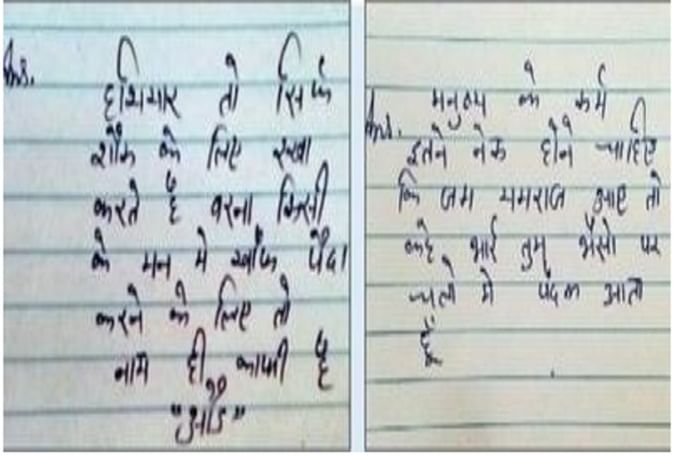 Ans.
हथियार तो सिर्फ
शौक के लिए रखा
करते है वरना किसी
के मन मे खौंफ पैदा
करने के लिए तो
नाम ही काफी है
Ans.
मनुष्य के कर्म
इतने नेक होने चाहिए
कि जब यमराज आए तो
कहे भाई तुम भैंसो पर
चलो मे पैदल आता
हूँ